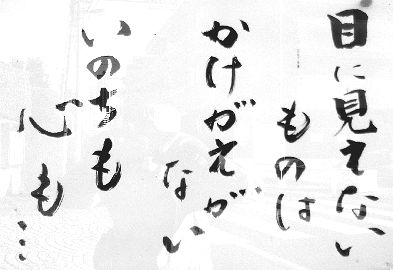 目に見えない
ものは
かけがえが
ない
いのちも
心も…